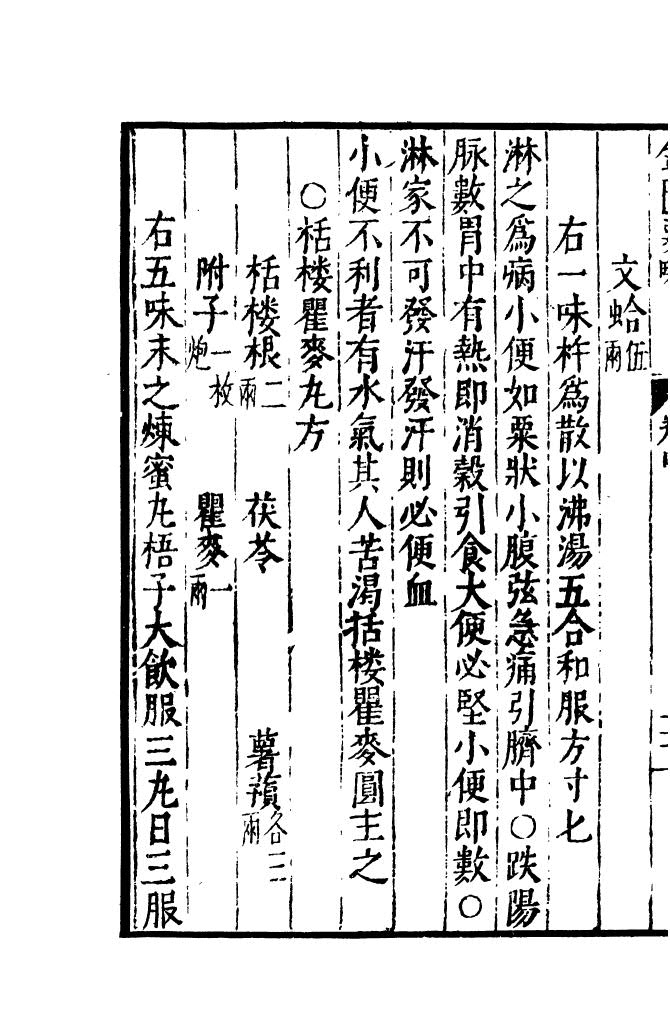 文蛤伍兩
右一味杵爲散以沸湯五合和服方寸匕
淋之爲病小便如粟狀小腹弦急痛引臍中○趺陽
脉數胃中有熱即消穀引食大便必堅小便即數○
淋家不可發汗發汗則必便血
小便不利者有水氣其人苦渴括樓瞿麥圓主之
○栝樓瞿麥丸方
栝樓根二兩 茯苓 薯蕷各三兩
附子一枚炮 瞿麥一兩
右五味末之煉蜜丸梧子大飲服三丸日三服